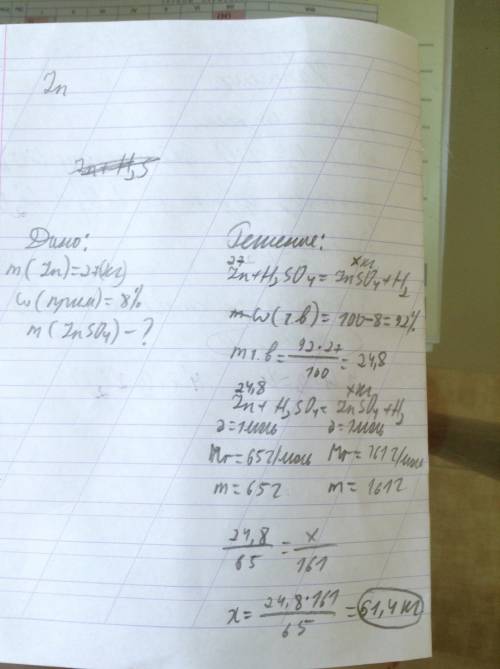 Zn
Zn + H2S
Дано:
m(Zn)=27(кг)
ω(прим)=8%
m(ZnSO4)-?
Решение:
27 x кг
Zn+H2SO4=ZnSO4+H2
ω(ч.в)=100-8=92%
m ч.в=92·27/100=24,8
24,8 x кг
Zn+H2SO4=ZnSO4+H2
∂=1моль ∂=1моль
Mr=65г/моль Mr=161г/моль
m=65г m=161г
24,8/65=x/161
x=24,8·161/65=61,4 кг